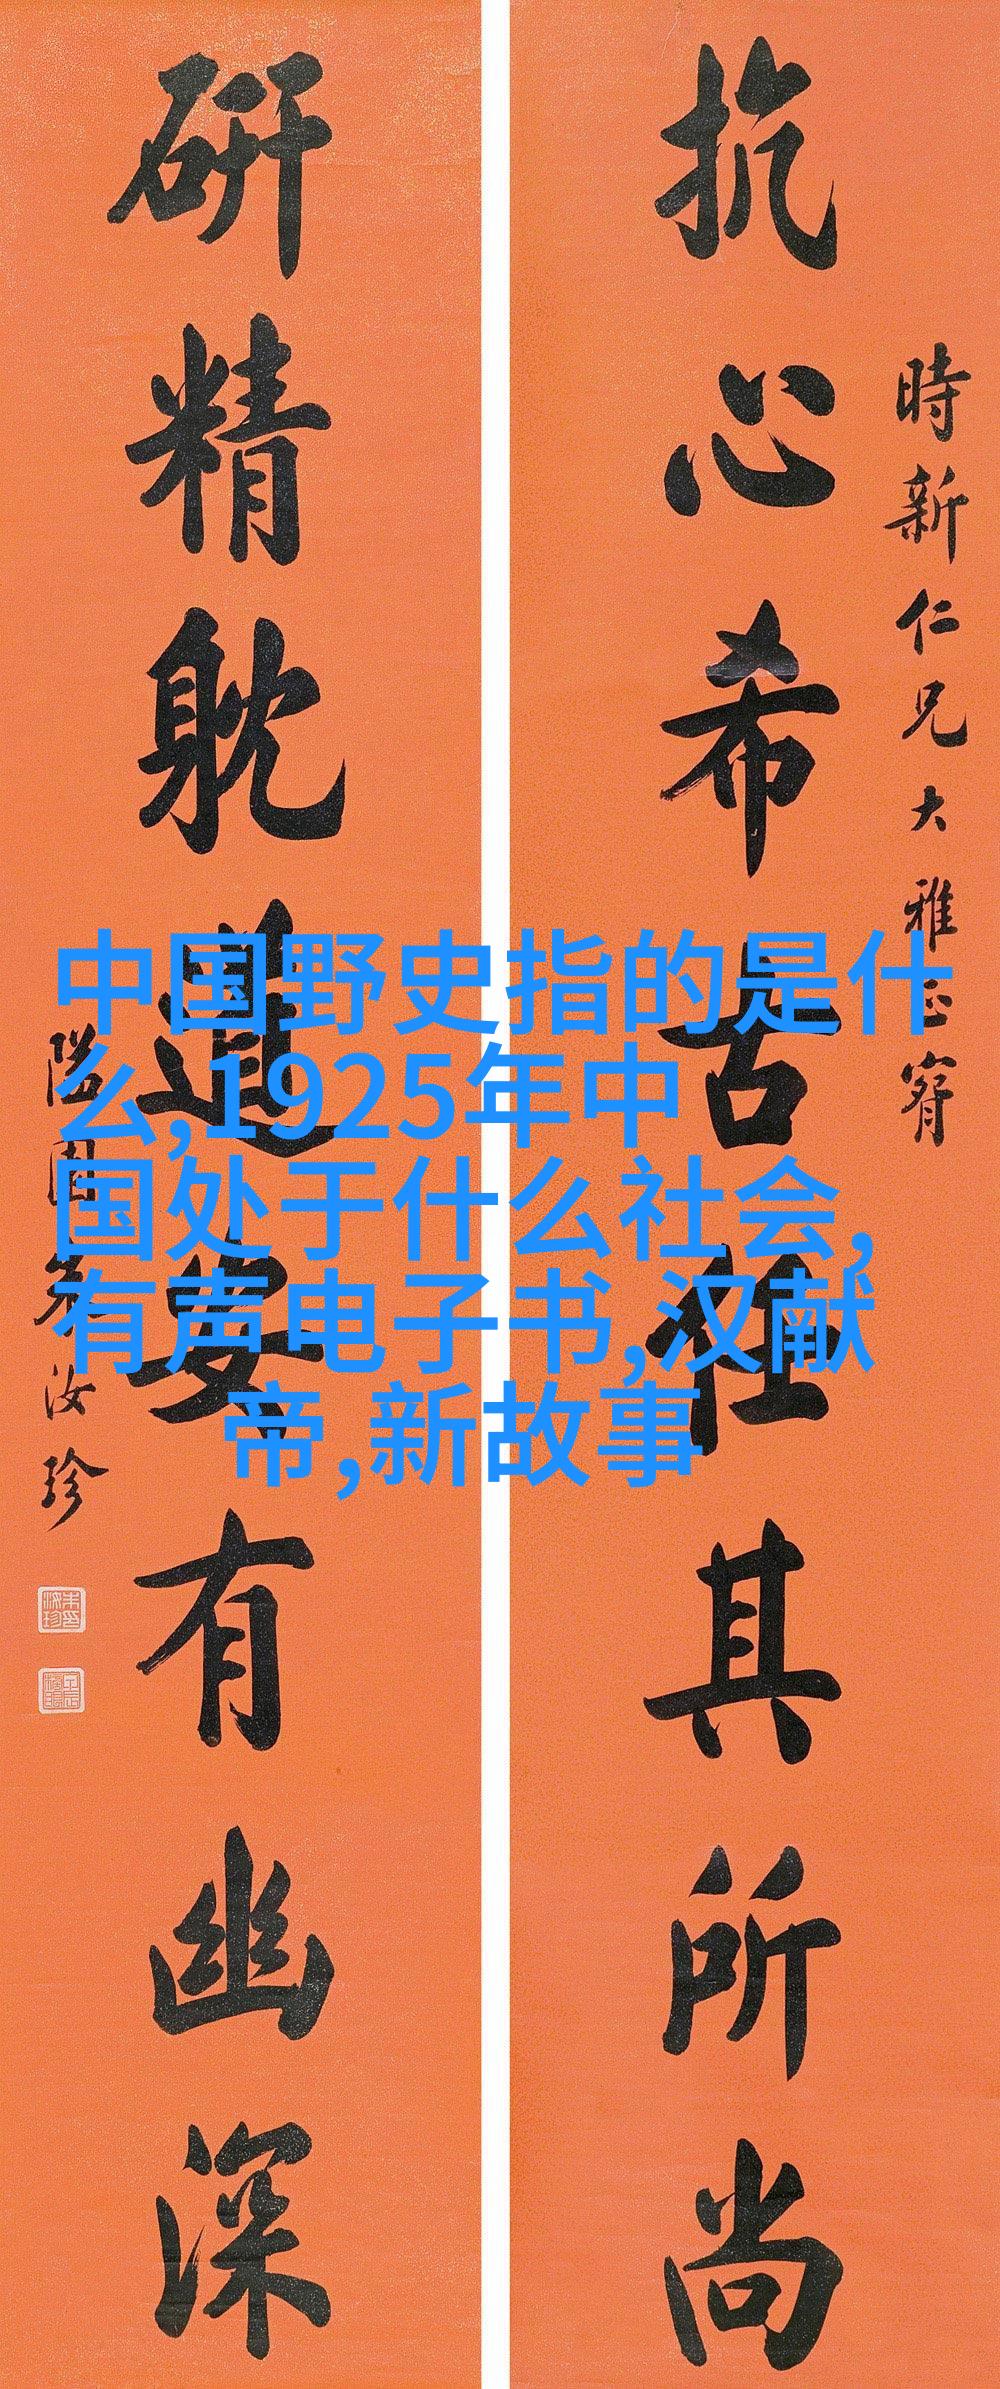 抗心希古任其所尚
時新仁兄大雅正䆷
研精躭道安有幽深
隘園朱汝珍
朱汝珍印
中国野史指的是什
么,1925年中
国处于什么社会,
有声电子书,汉献
帝,新故事